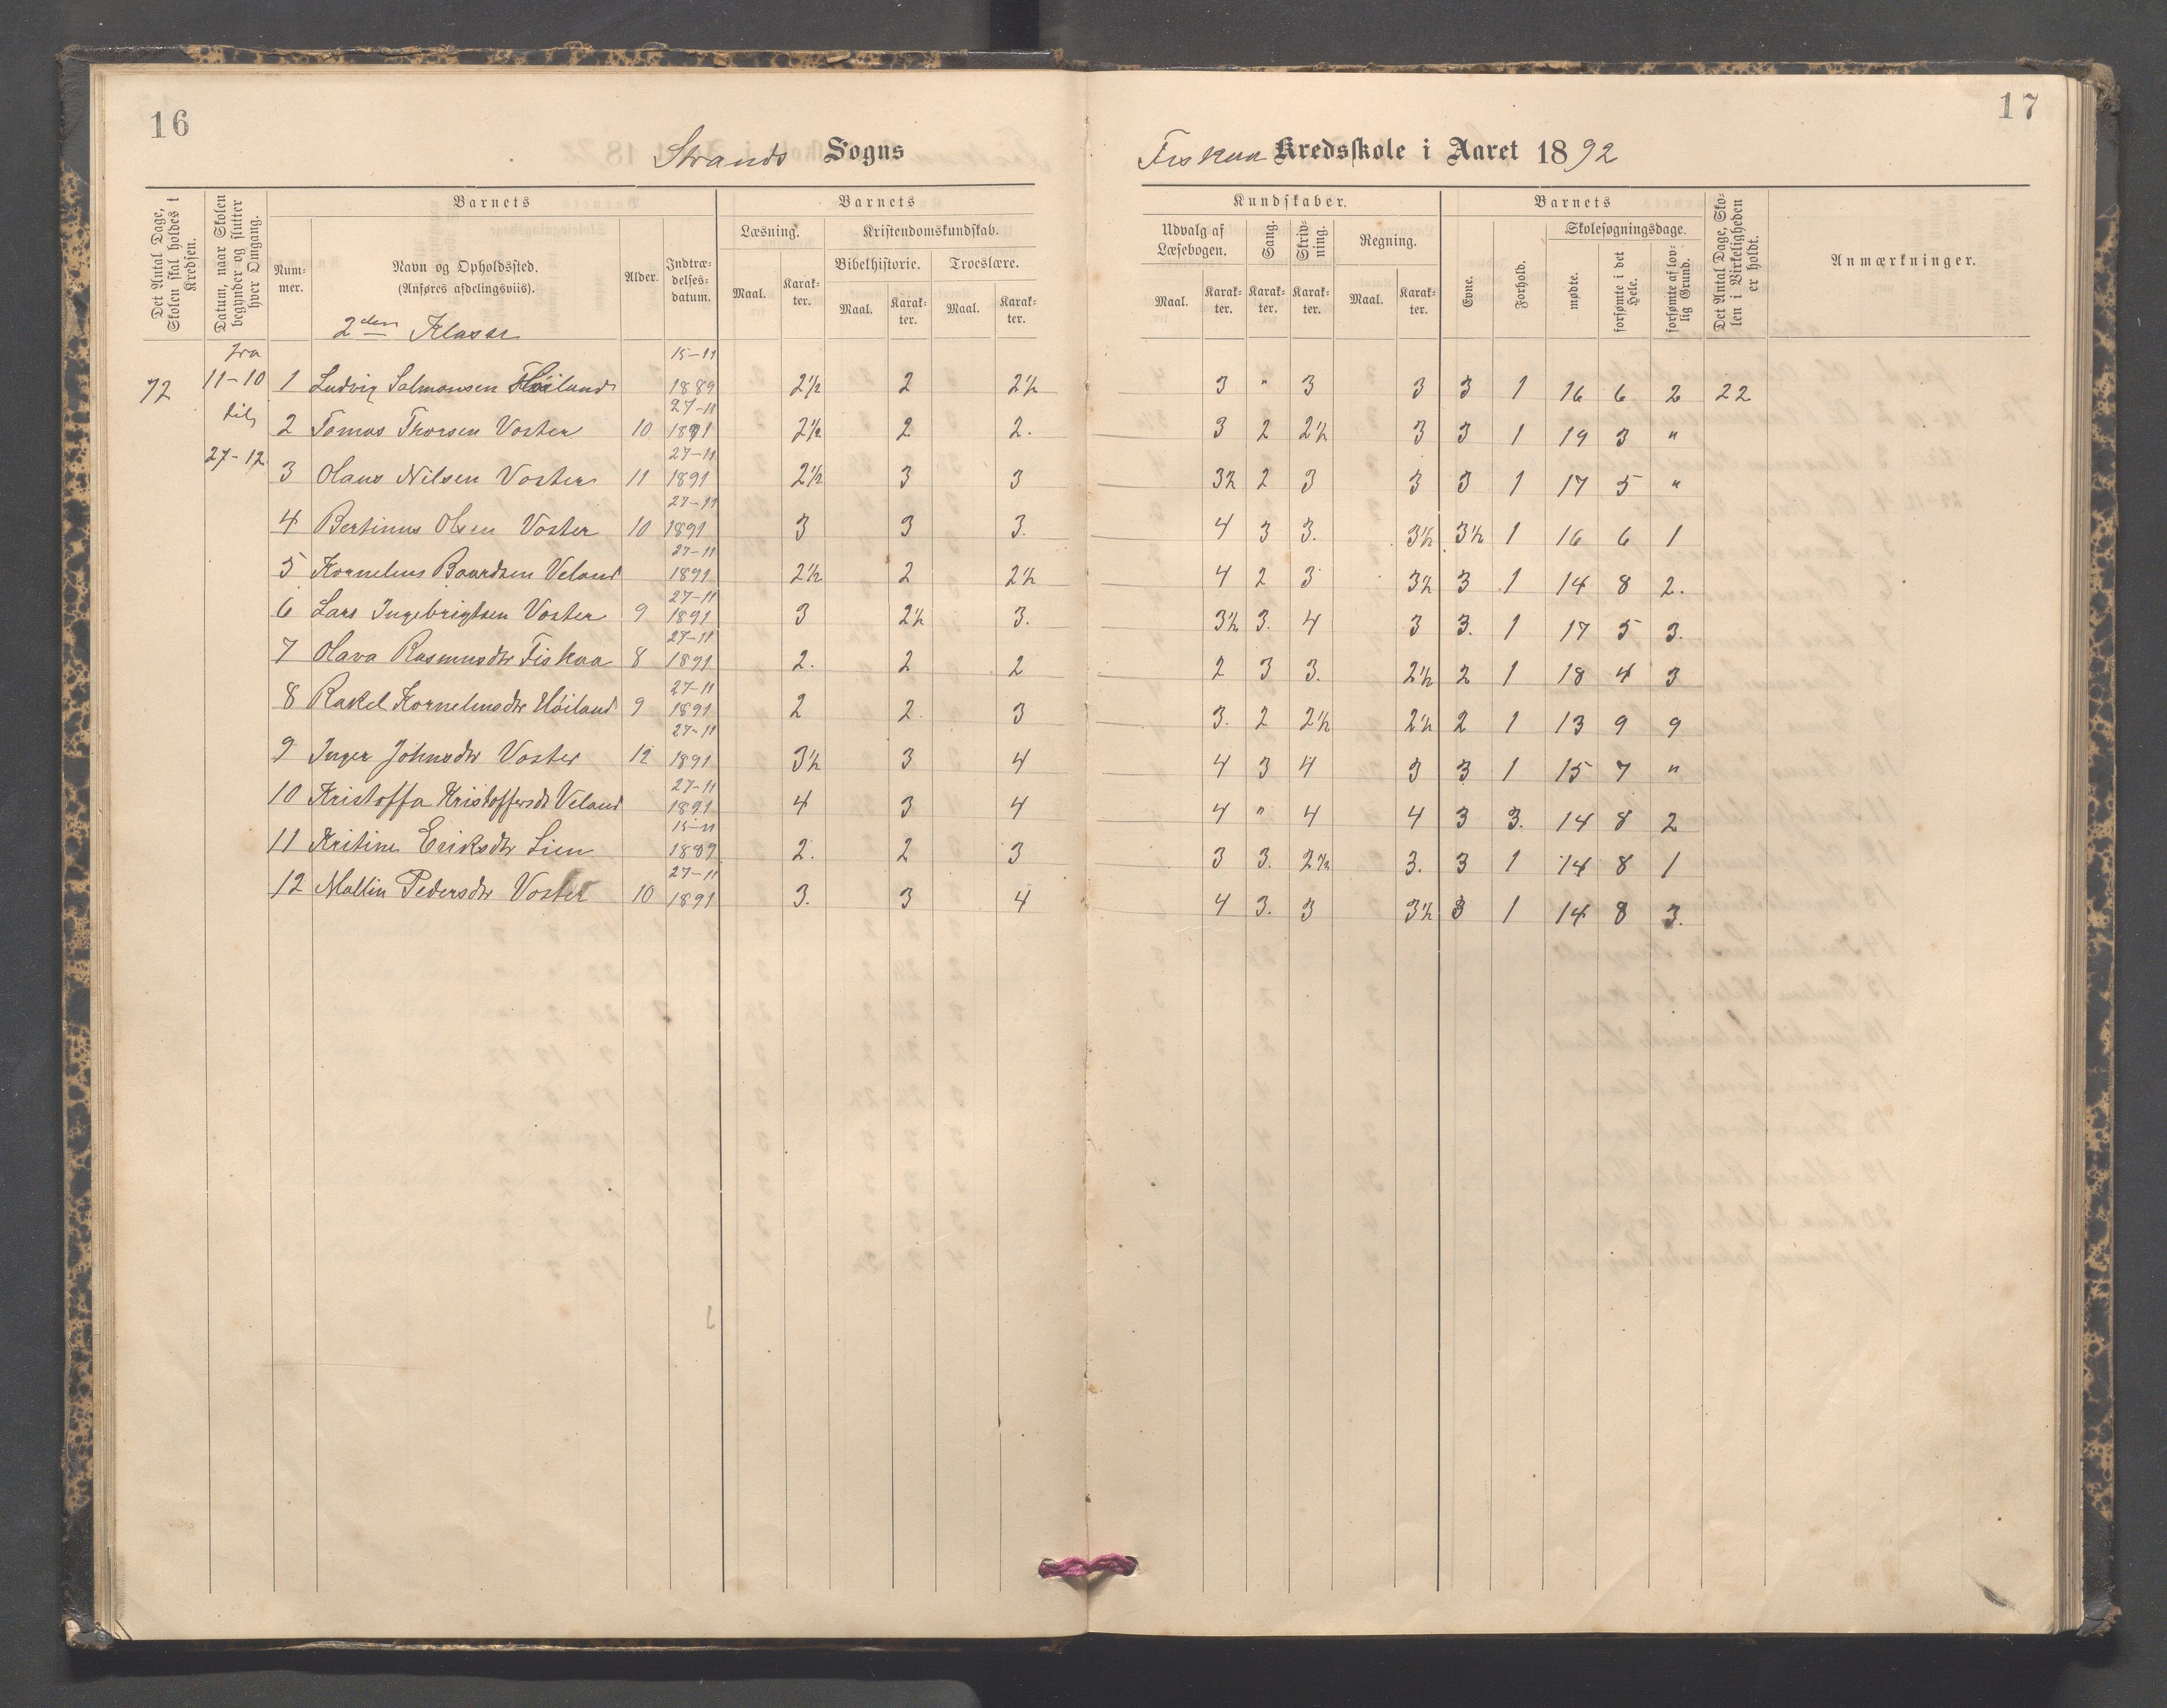 16
Strands Sogns
Det Antal Dage, Skolen skal holdes i Kredsen.
Datum, naar Skolen begynder og slutter hver Omgang.
Barnets
Nummer.
Navn og Opholdssted.
(Anføres afdelingsviis).
Alder.
Indtrædelsesdatum.
Barnets
Læsning.
Kristendomskundskab.
Bibelhistorie. Troeslære.
Maal. Karakter. Maal. Karakter. Maal. Karakter.
2den Klasse
72
fra
11-10
til
27-12
1 Ludvig Salmonsen Høiland 15-11 1889 2½ 2 2½
2 Tomas Thorsen Voster 10 27-11 1891 2½ 2 2.
3 Olaus Nilsen Voster 11 27-11 1891 2½ 3 3
4 Bertinus Olsen Voster 10 27-11 1891 3 3 3.
5 Kornelius Baardsen Veland 27-11 1891 2½ 2 2½
6 Lars Ingebrigtsen Voster 9 27-11 1891 3 2½ 3.
7 Olava Rasmusdtr Fiskaa 8 27-11 1891 2. 2 2
8 Rakel Korneliusdtr Høiland 9 27-11 1891 2 2. 3
9 Inger Johnsdtr Voster 12 27-11 1891 3½ 3 4
10 Kristoffa Kristoffersdt Veland 27-11 1891 4 3 4
11 Kritine Eriksdtr Lien 15-11 1889 2. 2 3
12 Mallin Pedersdtr Voster 10 27-11 1891 3. 3 4
17
Fiskaa Kredsskole i Aaret 1892
Kundskaber.
Udvalg af Læsebogen.
Sang.
Skrivning.
Regning.
Maal. Karakter. Karakter. Karakter. Maal. Karakter.
Barnets
Evne.
Forhold.
Skolesøgningsdage.
mødte.
forsømte i det Hele.
forsømte af lovlig Grund.
Det Antal Dage, Skolen i Virkeligheden er holdt.
Anmærkninger.
3 " 3 3 3 1 16 6 2 22
3 2 2½ 3 3 1 19 3 "
3½ 2 3 3 3 1 17 5 "
4 3 3. 3½ 3½ 1 16 6 1
4 2 3 3½ 3 1 14 8 2.
3½ 3. 4 3 3. 1 17 5 3.
2 3 3. 2½ 2 1 18 4 3
3. 2 2½ 2½ 2 1 13 9 9
4 3 4 3 3 1 15 7 "
4 " 4 4 3 3. 14 8 2
3 3. 2½ 3. 3 1 14 8 1
4 3. 3 3½ 3 1 14 8 3.